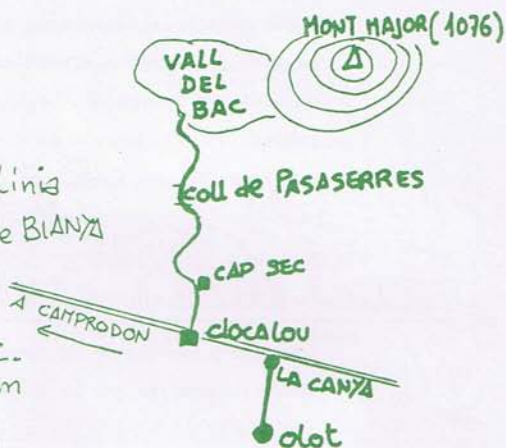 MONT MAJOR (1076)
VALL
DEL
BAC
Línia
e BIANYA
coll de PASASERRES
CAP SEC
A CAMPRODON
clocalou
LA CANYA
olot